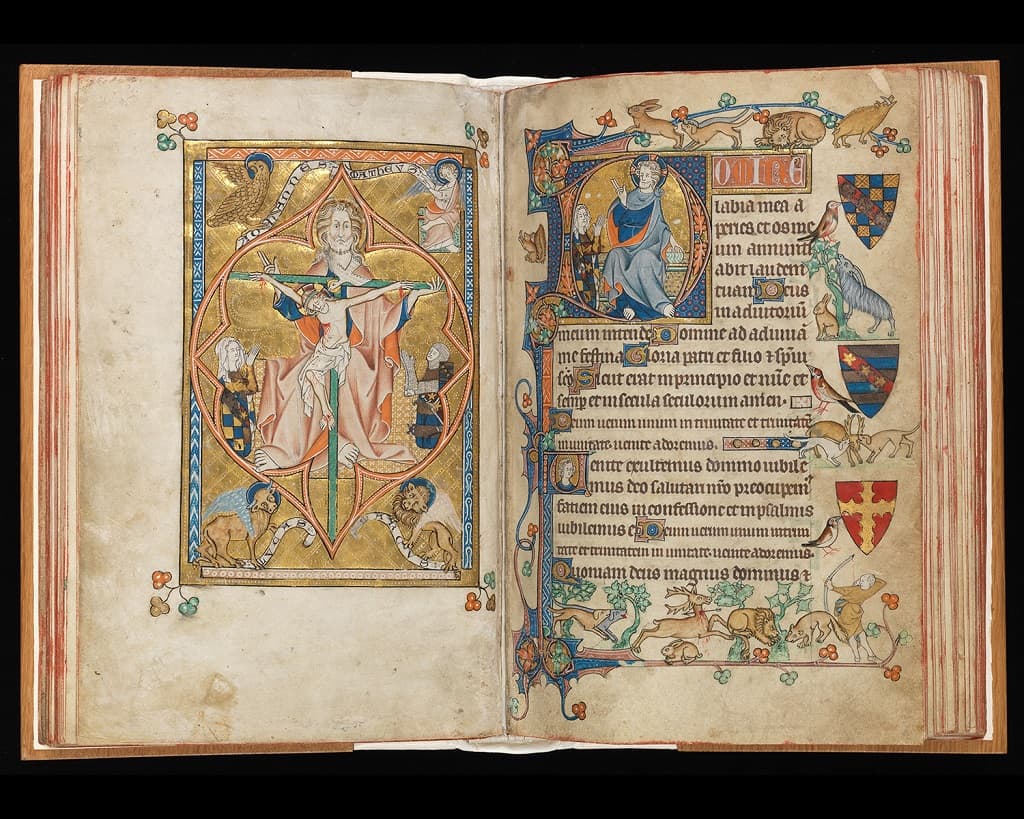 IOHANNES
MATHEVS
LVCAS
MARCVS
labia mea a
peries et os me
um annunti
abit laudem
tuam Deus
in adiutoriū
meum intende Domine ad adiuuā
me festina Gloria patri et filio ⁊ sp̄iu
sc̄o Sicut erat in principio et nūc et
semp̄ et in secula seculorum amen.
Deum uerum unum in trinitate et trinitatē
in unitate uenite adoremus.
Uenite exultemus domino iubile
mus deo salutari nr̄o preocupem̄
faciem eius in confessione et in psalmis
iubilemus ei Deum uerum unum in trini
tate et trinitatem in unitate uenite adoremus.
Quoniam deus magnus dominus ⁊